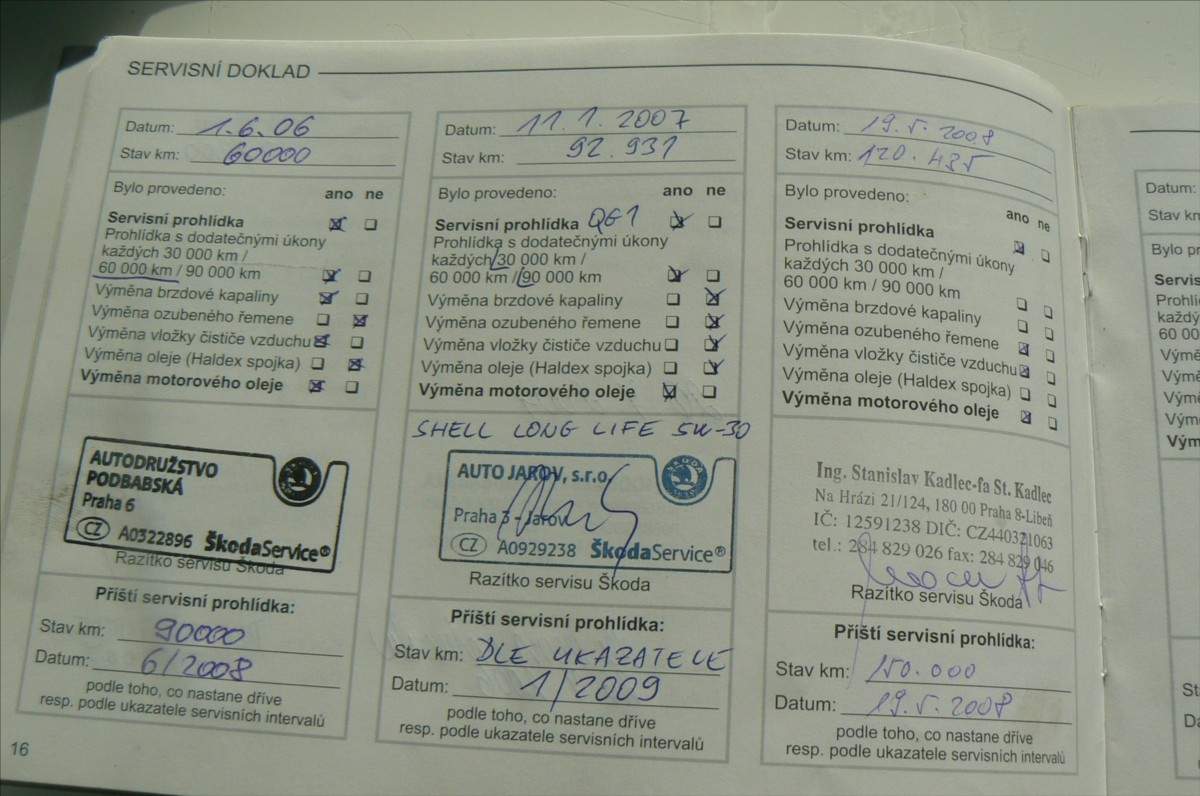 SERVISNÍ DOKLAD
Datum: 1.6.06
Stav km: 60000
Bylo provedeno: ano ne
Servisní prohlídka
Prohlídka s dodatečnými úkony
každých 30 000 km /
60 000 km / 90 000 km
Výměna brzdové kapaliny
Výměna ozubeného řemene
Výměna vložky čističe vzduchu
Výměna oleje (Haldex spojka)
Výměna motorového oleje
AUTODRUŽSTVO
PODBABSKÁ
Praha 6
CZ A0322896 ŠkodaService®
Razítko servisu Škoda
Příští servisní prohlídka:
Stav km: 90000
Datum: 6/2008
podle toho, co nastane dříve
resp. podle ukazatele servisních intervalů
16
Datum: 11.1.2007
Stav km: 92.931
Bylo provedeno: ano ne
Servisní prohlídka QG1
Prohlídka s dodatečnými úkony
každých 30 000 km /
60 000 km / 90 000 km
Výměna brzdové kapaliny
Výměna ozubeného řemene
Výměna vložky čističe vzduchu
Výměna oleje (Haldex spojka)
Výměna motorového oleje
SHELL LONG LIFE 5W-30
AUTO JAROV, s.r.o.
Praha 3 - Jarov
CZ A0929238 ŠkodaService®
Razítko servisu Škoda
Příští servisní prohlídka:
Stav km: DLE UKAZATELE
Datum: 1/2009
podle toho, co nastane dříve
resp. podle ukazatele servisních intervalů
Datum: 19.5.2008
Stav km: 120.435
Bylo provedeno: ano ne
Servisní prohlídka
Prohlídka s dodatečnými úkony
každých 30 000 km /
60 000 km / 90 000 km
Výměna brzdové kapaliny
Výměna ozubeného řemene
Výměna vložky čističe vzduchu
Výměna oleje (Haldex spojka)
Výměna motorového oleje
Ing. Stanislav Kadlec-fa St. Kadlec
Na Hrázi 21/124, 180 00 Praha 8-Libeň
IČ: 12591238 DIČ: CZ440321063
tel.: 284 829 026 fax: 284 829 046
Razítko servisu Škoda
Příští servisní prohlídka:
Stav km: 150.000
Datum: 19.5.2008
podle toho, co nastane dříve
resp. podle ukazatele servisních intervalů
Datum:
Stav km
Bylo pr
Servis
Prohlí
každý
60 00
Výmě
Výmě
Výmě
Výmě
Vým